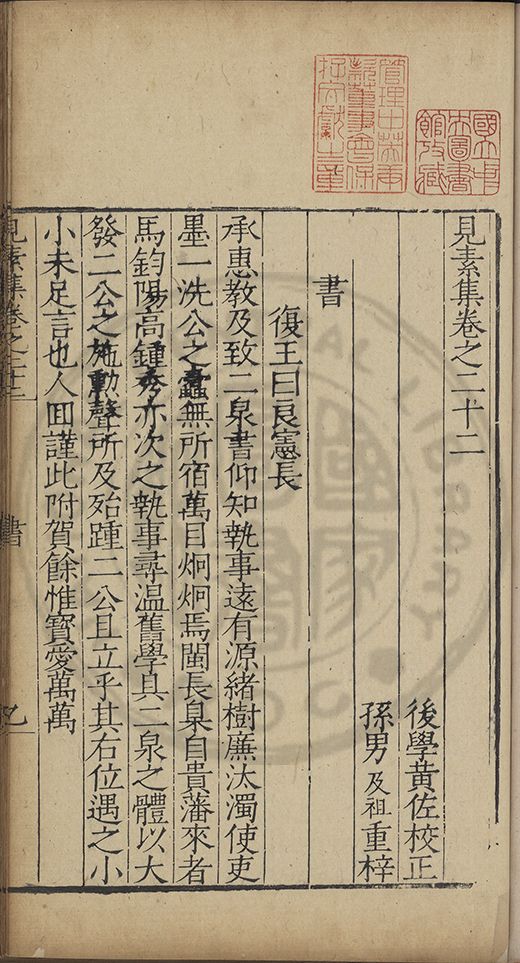 見素集卷之二十二
後學黃佐校正
孫男及祖重梓
書
復王曰良憲長
承惠教及致二泉書仰知執事遠有源緒樹廉汰濁使吏
墨一洗公之蠹無所宿萬目炯炯焉閩長臬自貴藩來者
馬鈞陽高鍾秀亦次之執事尋溫舊學具二泉之體以大
發二公之施動聲所及殆踵二公且立乎其右位遇之小
小未足言也人囬謹此附賀餘惟寶愛萬萬
見素集卷之二十二
書
乙一
國立中央圖書館攷藏
管理中英庚款董事會保存文獻之章